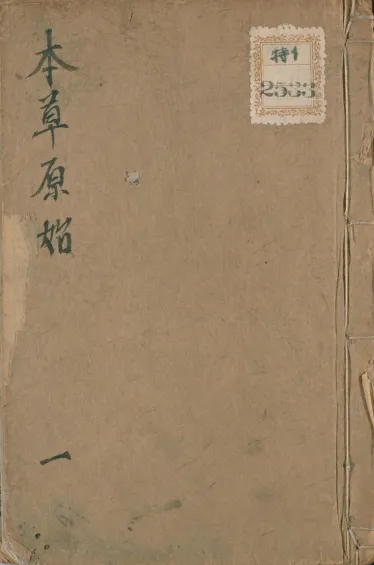 本草原始
一
特1
2533